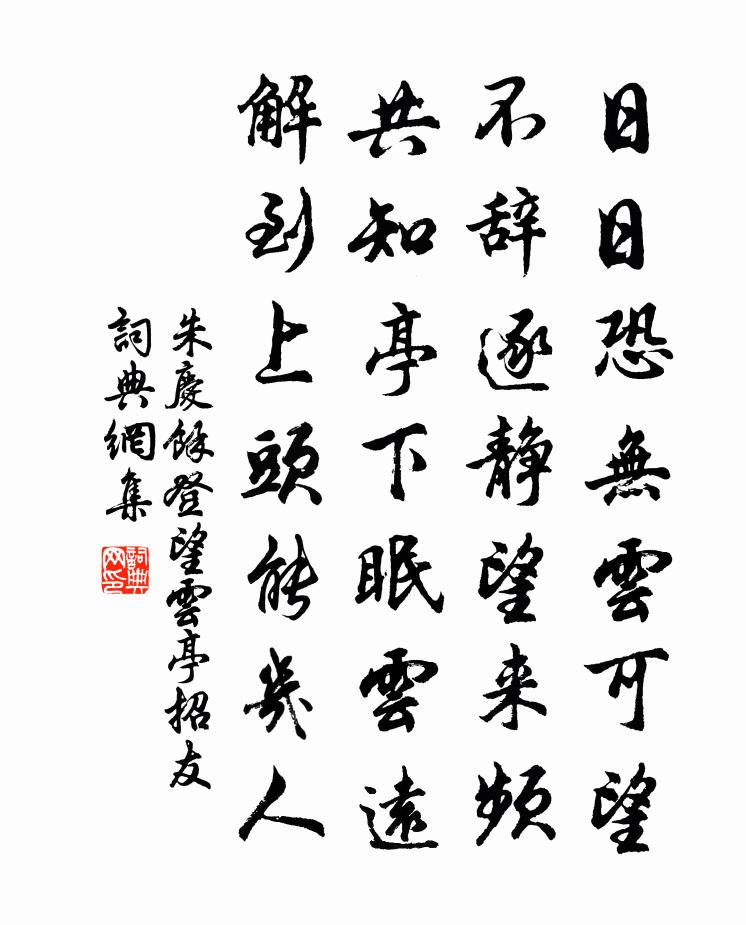 日日恐無雲可望
不辞逐静望来頻
共知亭下眠雲遠
解到上頭能幾人
朱慶餘登望雲亭招友
詞典網集
詞典网印